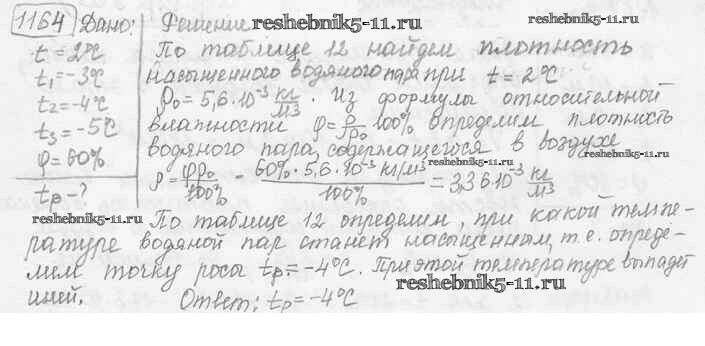 1164 Дано: Решение reshebnik5-11.ru reshebnik5-11.ru
t = 2°C По таблице 12 найдем плотность
t₁ = -3°C насыщенного водяного пара при t = 2°C
t₂ = -4°C ρ₀ = 5,6·10⁻³ кг/м³. Из формулы относительной
t₃ = -5°C влажности φ = ρ/ρ₀ 100% определим плотность
φ = 60% водяного пара, содержащегося в воздухе
tр - ? ρ = φρ₀/100% = 60%·5,6·10⁻³ кг/м³/100% = 3,36·10⁻³ кг/м³ reshebnik5-11.ru
reshebnik5-11.ru По таблице 12 определим, при какой темпе-
ратуре водяной пар станет насыщенным, т.е. опреде-
лим точку росы tр = -4°C. При этой температуре выпадет
иней. Ответ: tр = -4°C reshebnik5-11.ru